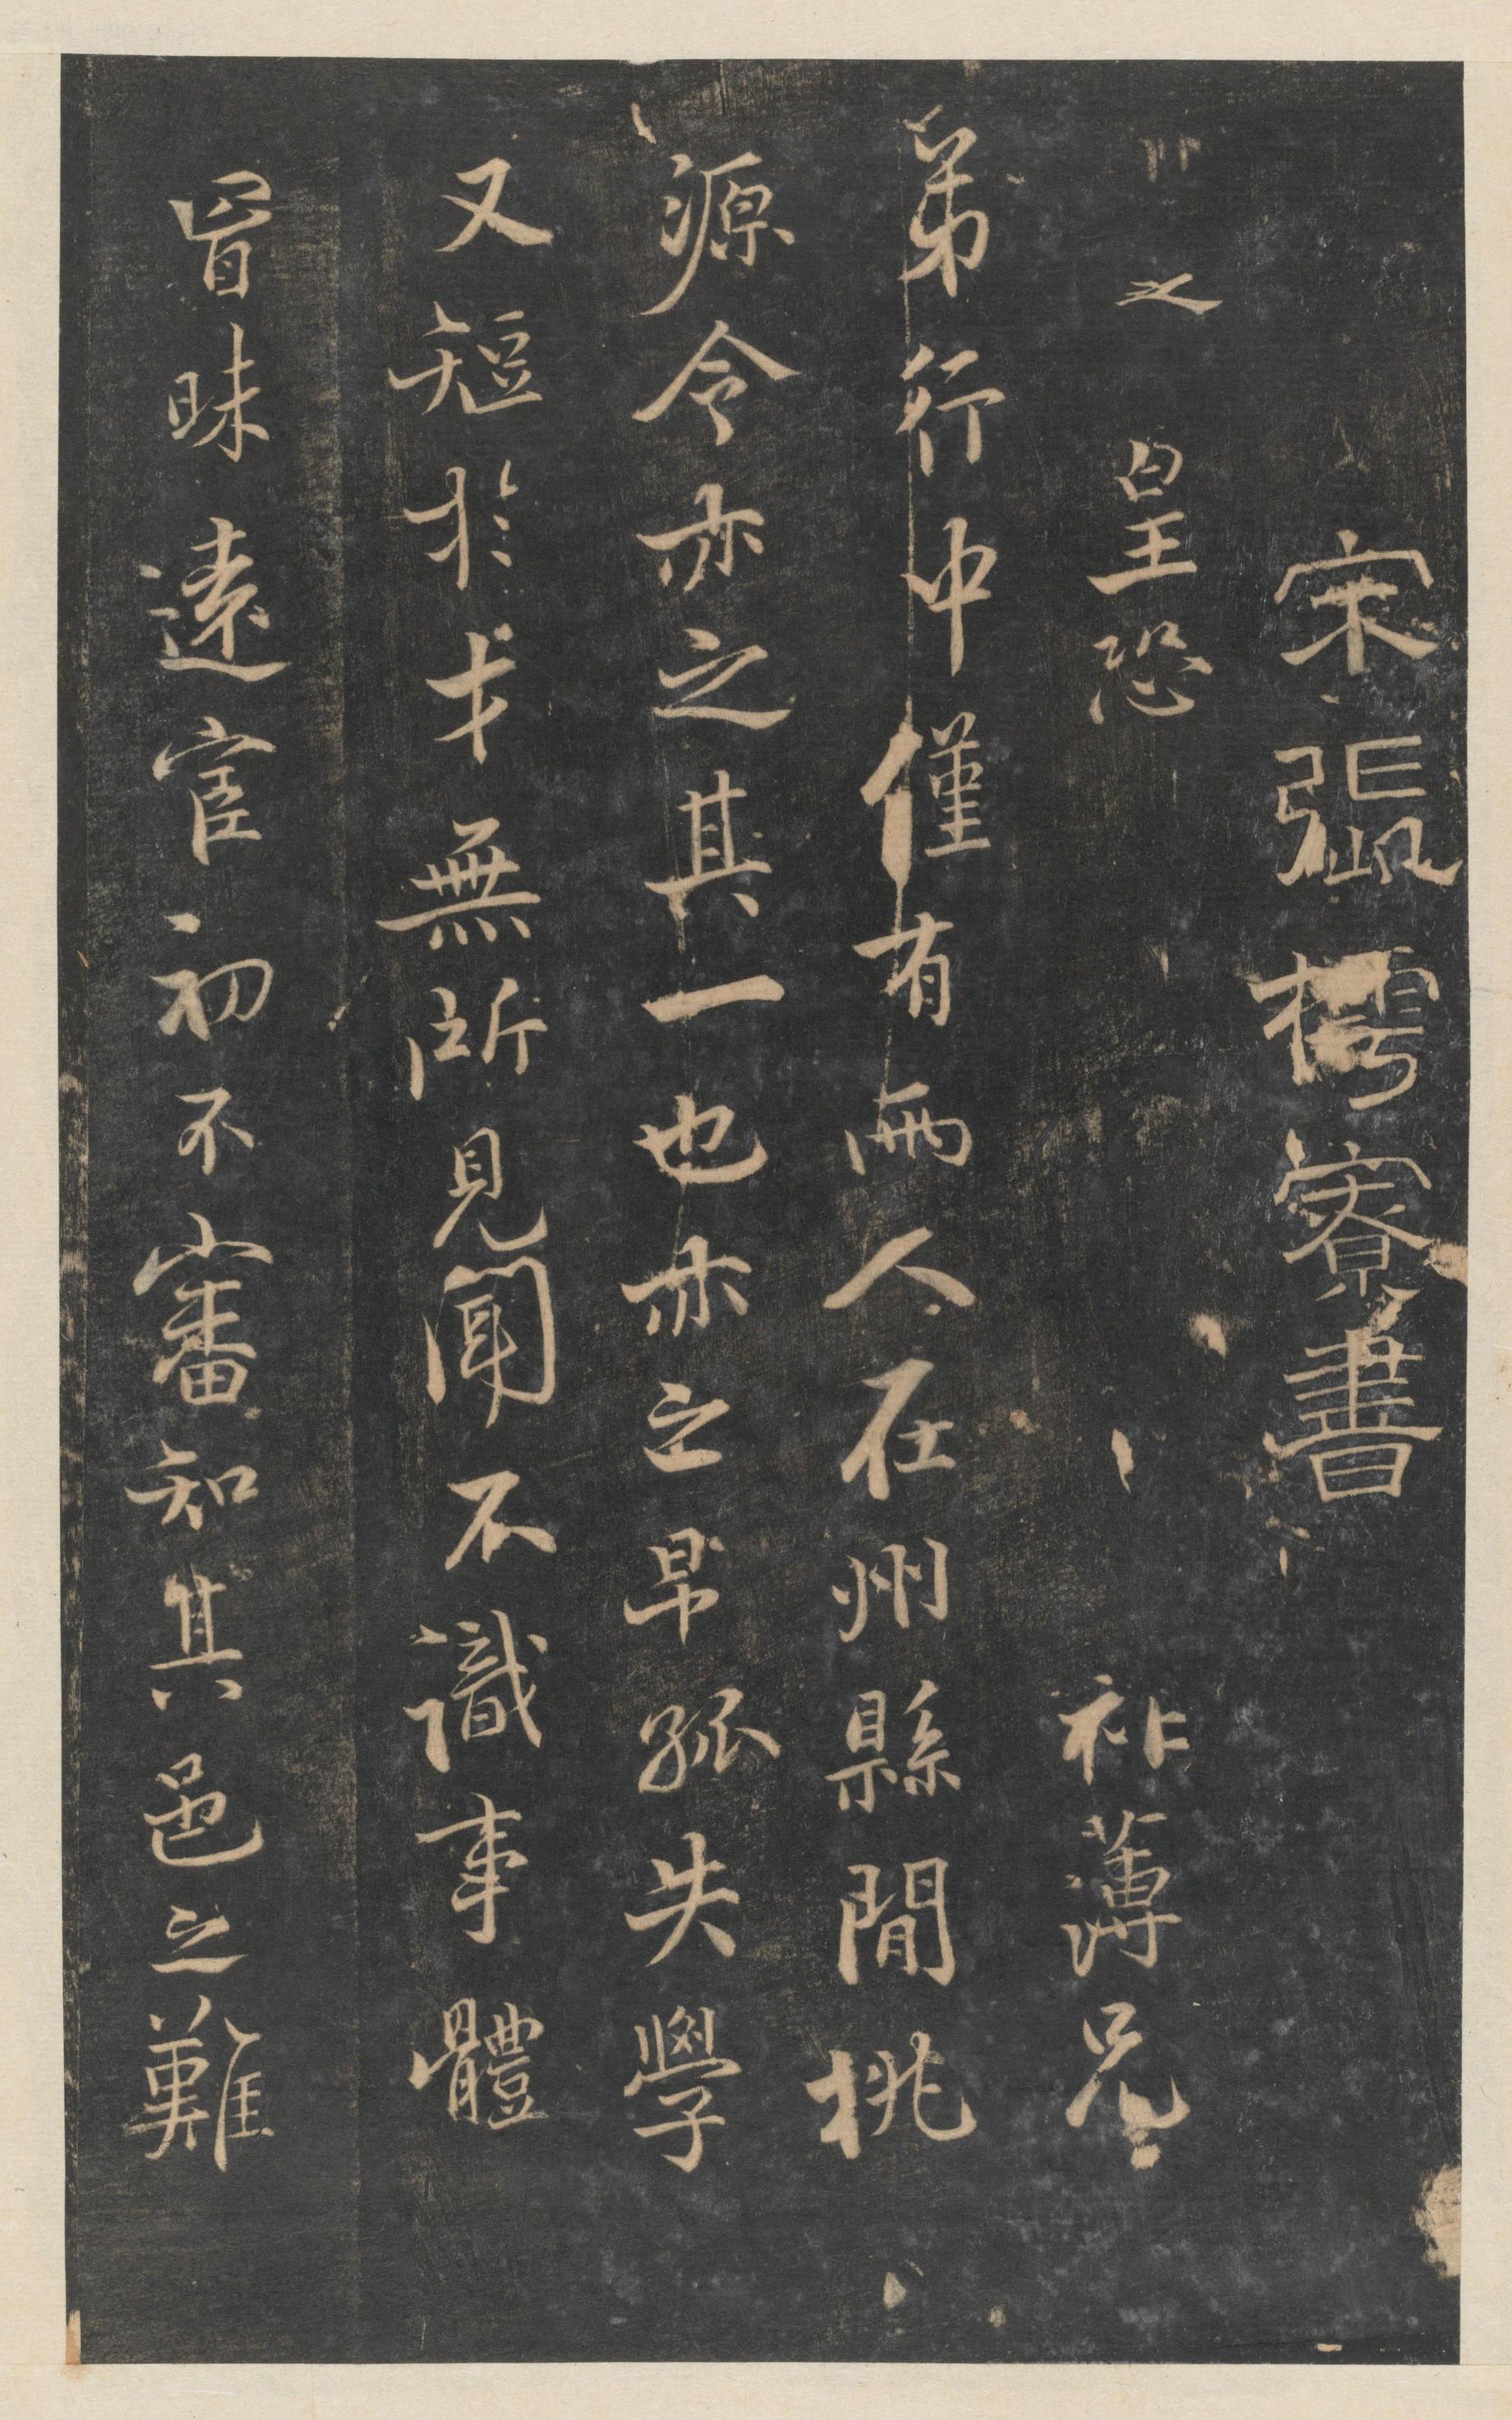 宋張樗寮書
之 皇恐 祚薄兄
弟行中僅有兩人在州縣間桃
源令亦之其一也亦之早孤失學
又短於才無所見聞不識事體
冒昧遠宦初不審知其邑之難